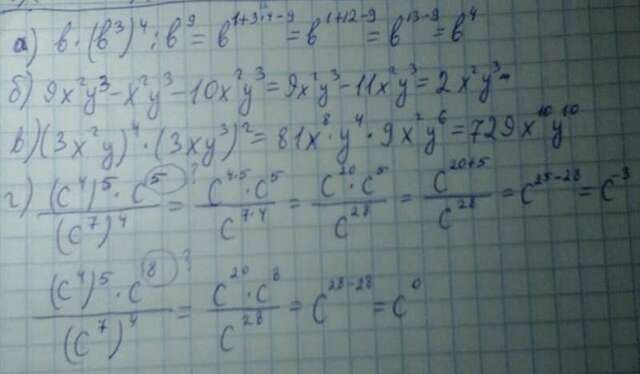 а) b · (b³)⁴ : b⁹ = b¹⁺³·⁴⁻⁹ = b¹⁺¹²⁻⁹ = b¹³⁻⁹ = b⁴
б) 9x²y³ - x²y³ - 10x²y³ = 9x²y³ - 11x²y³ = 2x²y³ -
в) (3x²y)⁴ · (3xy³)² = 81x⁸ · y⁴ · 9x²y⁶ = 729x¹⁰y¹⁰
г) (c⁴)⁵ · c⁵ ? / (c⁷)⁴ = c⁴·⁵ · c⁵ / c⁷·⁴ = c²⁰ · c⁵ / c²⁸ = c²⁰⁺⁵ / c²⁸ = c²⁵⁻²⁸ = c⁻³
(c⁴)⁵ · c⁸ ? / (c⁷)⁴ = c²⁰ · c⁸ / c²⁸ = c²⁸⁻²⁸ = c⁰